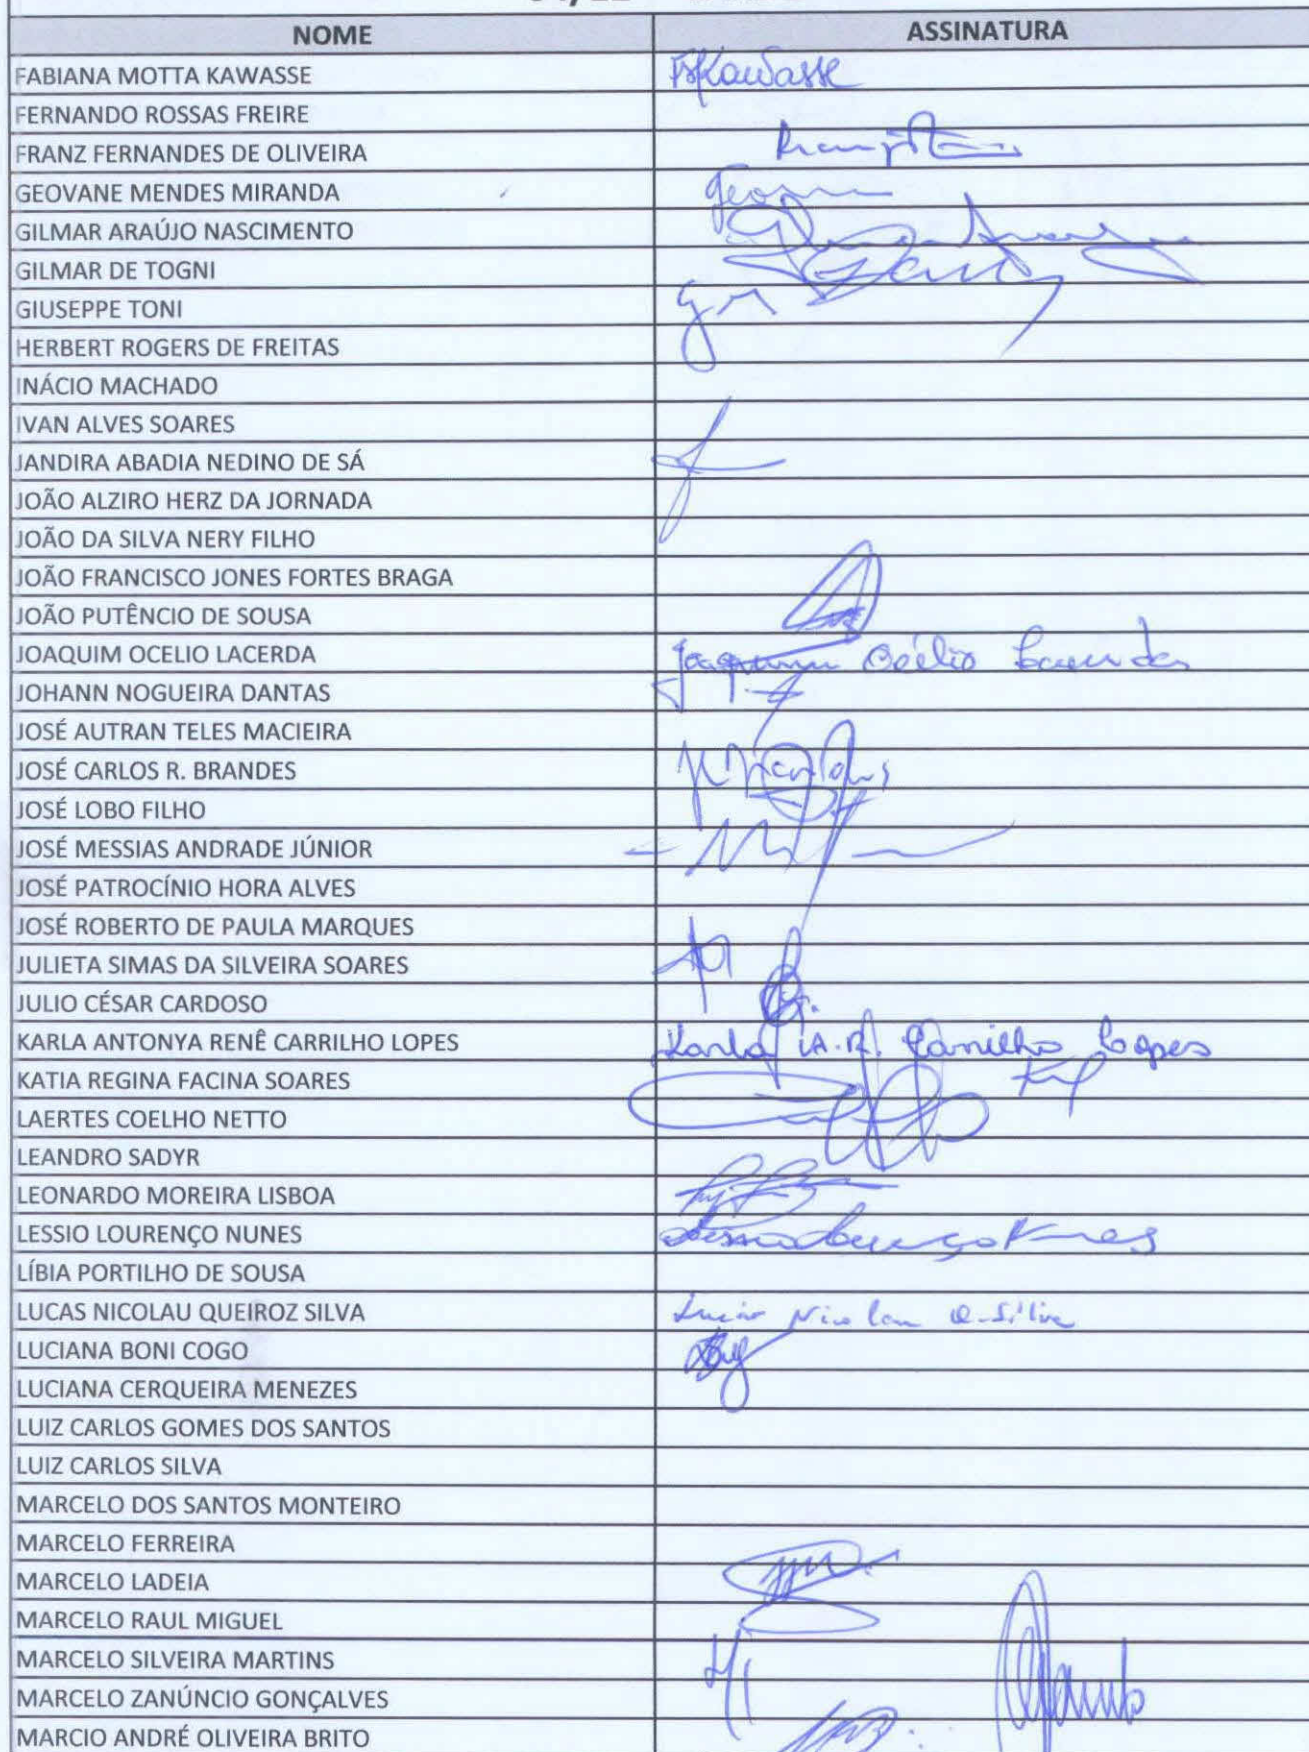 NOME ASSINATURA
FABIANA MOTTA KAWASSE FMKawasse
FERNANDO ROSSAS FREIRE
FRANZ FERNANDES DE OLIVEIRA
GEOVANE MENDES MIRANDA
GILMAR ARAÚJO NASCIMENTO
GILMAR DE TOGNI
GIUSEPPE TONI
HERBERT ROGERS DE FREITAS
INÁCIO MACHADO
IVAN ALVES SOARES
JANDIRA ABADIA NEDINO DE SÁ
JOÃO ALZIRO HERZ DA JORNADA
JOÃO DA SILVA NERY FILHO
JOÃO FRANCISCO JONES FORTES BRAGA
JOÃO PUTÊNCIO DE SOUSA
JOAQUIM OCELIO LACERDA Joaquim Océlio Lacerda
JOHANN NOGUEIRA DANTAS
JOSÉ AUTRAN TELES MACIEIRA
JOSÉ CARLOS R. BRANDES
JOSÉ LOBO FILHO
JOSÉ MESSIAS ANDRADE JÚNIOR
JOSÉ PATROCÍNIO HORA ALVES
JOSÉ ROBERTO DE PAULA MARQUES
JULIETA SIMAS DA SILVEIRA SOARES
JULIO CÉSAR CARDOSO
KARLA ANTONYA RENÊ CARRILHO LOPES Karla A.R. Carrilho Lopes
KATIA REGINA FACINA SOARES
LAERTES COELHO NETTO
LEANDRO SADYR
LEONARDO MOREIRA LISBOA
LESSIO LOURENÇO NUNES Lessio Lourenço Nunes
LÍBIA PORTILHO DE SOUSA
LUCAS NICOLAU QUEIROZ SILVA Lucas Nicolau Q. Silva
LUCIANA BONI COGO
LUCIANA CERQUEIRA MENEZES
LUIZ CARLOS GOMES DOS SANTOS
LUIZ CARLOS SILVA
MARCELO DOS SANTOS MONTEIRO
MARCELO FERREIRA
MARCELO LADEIA
MARCELO RAUL MIGUEL
MARCELO SILVEIRA MARTINS
MARCELO ZANÚNCIO GONÇALVES
MARCIO ANDRÉ OLIVEIRA BRITO